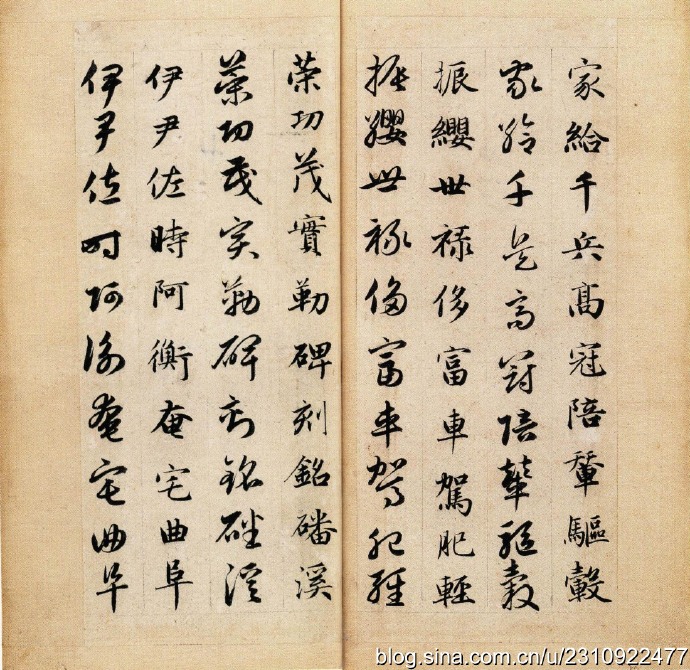 家給千兵髙冠陪輦驅轂
家給千兵髙冠陪輦驅轂
振纓世祿侈富車駕肥輕
振纓世祿侈富車駕肥輕
策功茂實勒碑刻銘磻溪
策功茂實勒碑刻銘磻溪
伊尹佐時阿衡奄宅曲阜
伊尹佐時阿衡奄宅曲阜
blog.sina.com.cn/u/2310922477